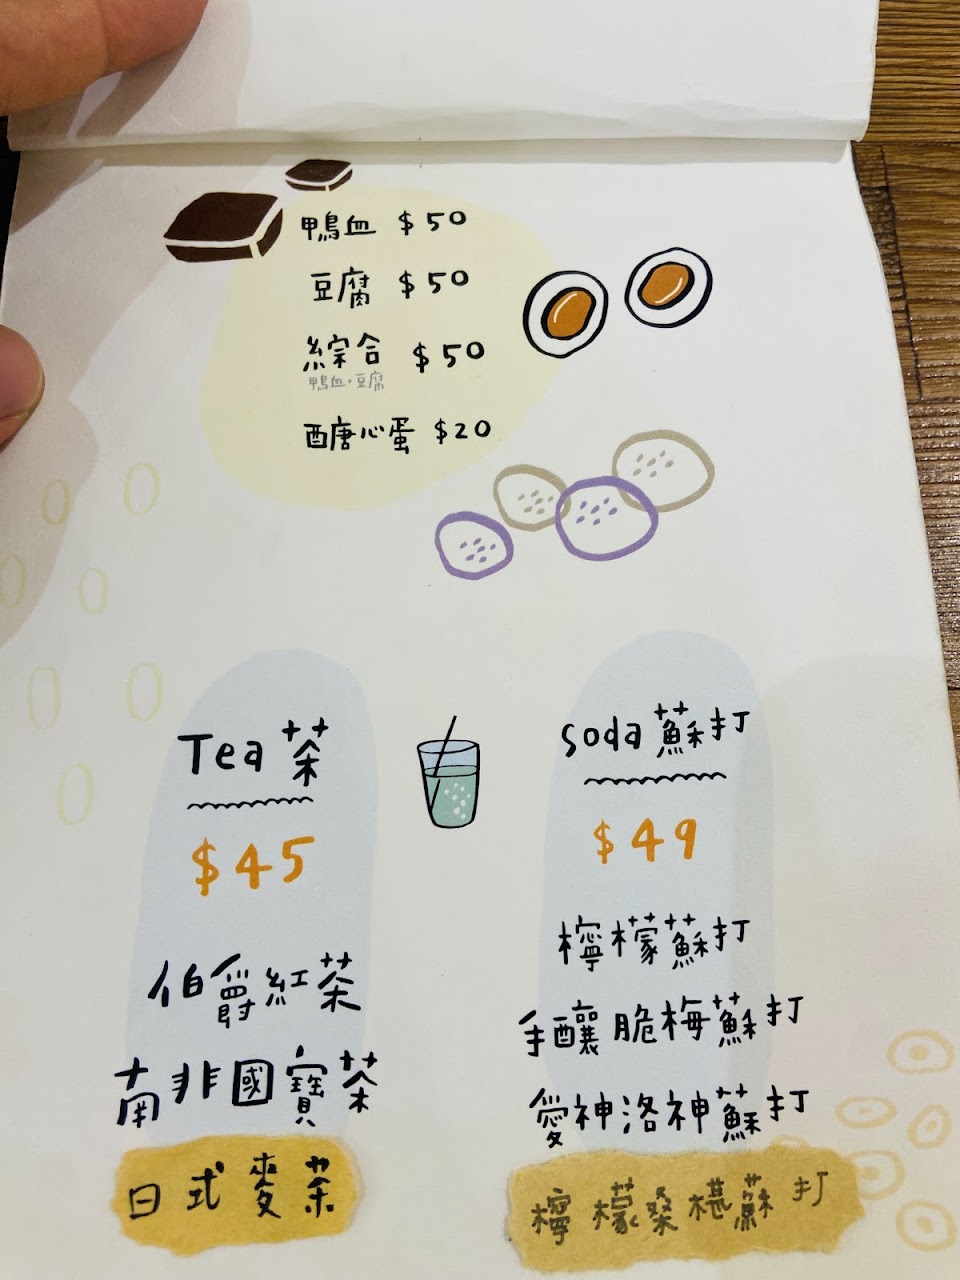 鴨血 $50
豆腐 $50
綜合 $50
鴨血+豆腐
醣心蛋 $20
Tea 茶
$45
伯爵紅茶
南非國寶茶
日式麥茶
Soda 蘇打
$49
檸檬蘇打
手釀脆梅蘇打
愛神洛神蘇打
檸檬桑椹蘇打